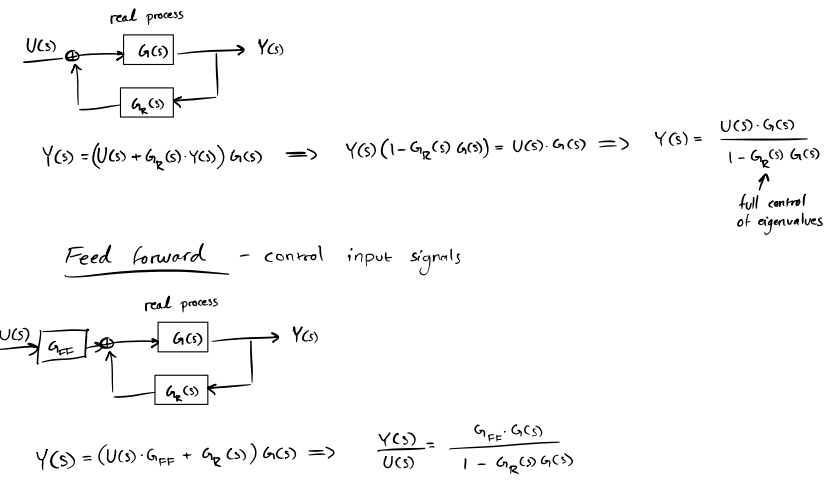 real process
U(s) ⊕ G(s) Y(s)
G_R(s)
Y(s) = (U(s) + G_R(s)·Y(s)) G(s) => Y(s) (1 - G_R(s) G(s)) = U(s)·G(s) => Y(s) = U(s)·G(s) / 1 - G_R(s) G(s)
full control
of eigenvalues
Feed forward - control input signals
real process
U(s) G_FF ⊕ G(s) Y(s)
G_R(s)
Y(s) = (U(s)·G_FF + G_R(s)) G(s) => Y(s) / U(s) = G_FF·G(s) / 1 - G_R(s) G(s)